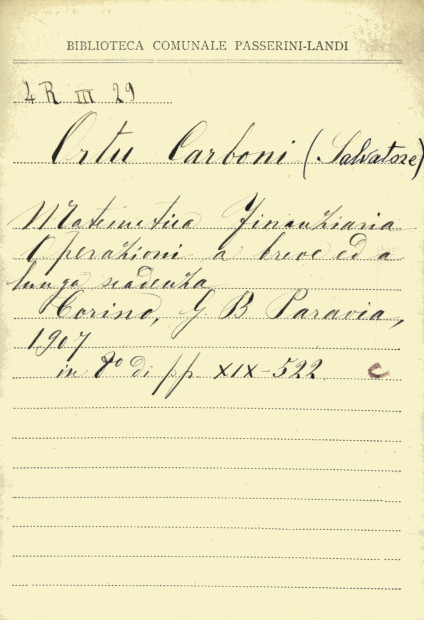 BIBLIOTECA COMUNALE PASSERINI-LANDI
4 R III 29
Ortu Carboni (Salvatore)
Matematica Finanziaria
Operazioni a breve ed a
lunga scadenza
Torino, G B Paravia,
1907
in 8º di pp. XIX-522
c